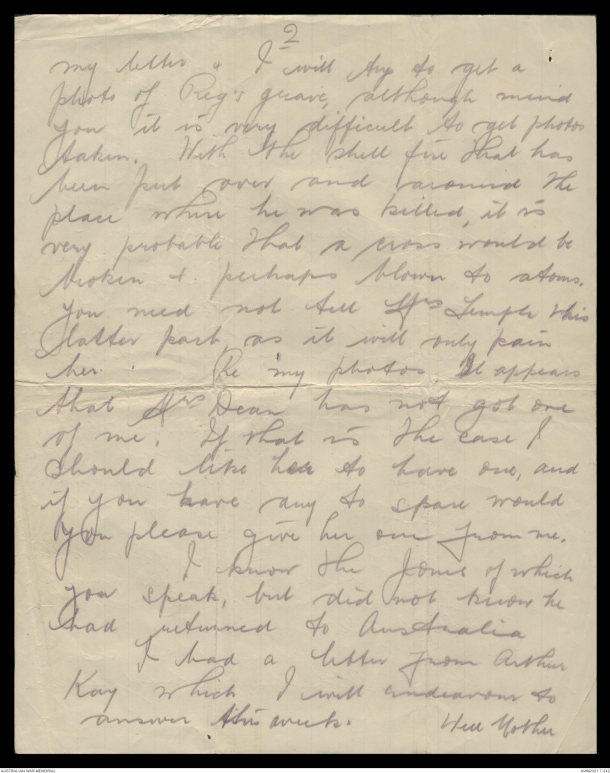 2
my letter & I will try to get a
photo of Reg's grave, although mind
you it is very difficult to get photos
taken. With the shell fire that has
been put over and around the
place where he was killed, it is
very probable that a cross would be
broken & perhaps blown to atoms.
You need not tell Mrs Temple this
latter part, as it will only pain
her. Re my photos. It appears
that Mrs Dean has not got one
of me. If that is the case I
should like her to have one, and
if you have any to spare would
you please give her one from me.
I know the Jones of which
you speak, but did not know he
had returned to Australia
I had a letter from Arthur
Kay which I will endeavour to
answer this week. Well Mother
AUSTRALIAN WAR MEMORIAL